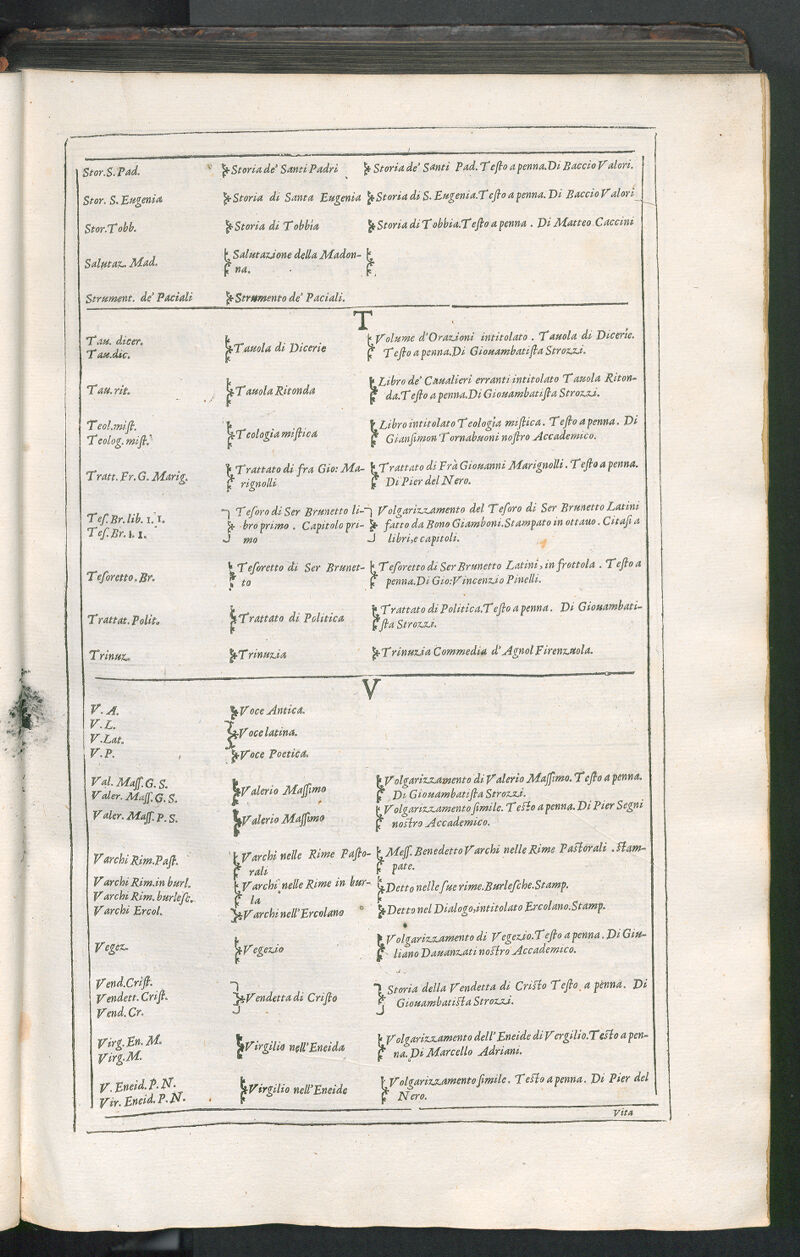 Stor.S.Pad. Storia de' Santi Padri Storia de' Santi Pad. Teſto a penna. Di Baccio Valori.
Stor. S. Eugenia Storia di Santa Eugenia Storia di S. Eugenia. Teſto a penna. Di Baccio Valori
Stor.Tobb. Storia di Tobbia Storia di Tobbia. Teſto a penna. Di Matteo Caccini
Salutaz. Mad. Salutazione della Madon-
na.
Strument. de' Paciali Strumento de' Paciali.
T
Tau. dicer.
Tau.dic.
Tauola di Dicerie
Volume d'Orazioni intitolato. Tauola di Dicerie.
Teſto a penna. Di Giouambatiſta Strozzi.
Tau.rit.
Tauola Ritonda
Libro de' Caualieri erranti intitolato Tauola Riton-
da. Teſto a penna. Di Giouambatiſta Strozzi.
Teol.miſt.
Teolog. miſt.
Teologia miſtica
Libro intitolato Teologia miſtica. Teſto a penna. Di
Gianſimon Tornabuoni noſtro Accademico.
Tratt. Fr. G. Marig.
Trattato di fra Gio: Ma-
rignolli
Trattato di Frà Giouanni Marignolli. Teſto a penna.
Di Pier del Nero.
Teſ. Br. lib. 1. 1.
Teſ. Br. 1. 1.
Teſoro di Ser Brunetto li-
bro primo. Capitolo pri-
mo
Volgarizzamento del Teſoro di Ser Brunetto Latini
fatto da Bono Giamboni. Stampato in ottauo. Citaſi a
libri, e capitoli.
Teſoretto. Br.
Teſoretto di Ser Brunet-
to
Teſoretto di Ser Brunetto Latini, in frottola. Teſto a
penna. Di Gio: Vincenzio Pinelli.
Trattat. Polit.
Trattato di Politica
Trattato di Politica. Teſto a penna. Di Giouambati-
ſta Strozzi.
Trinuz. Trinuzia Trinuzia Commedia d'Agnol Firenzuola.
V
V. A. Voce Antica.
V. L.
V. Lat.
Voce latina.
V. P. Voce Poetica.
Val. Maſſ. G. S.
Valer. Maſſ. G. S.
Valerio Maſſimo
Volgarizzamento di Valerio Maſſimo. Teſto a penna.
Di Giouambatiſta Strozzi.
Valer. Maſſ. P. S.
Valerio Maſſimo
Volgarizzamento ſimile. Teſto a penna. Di Pier Segni
noſtro Accademico.
Varchi Rim. Paſt.
Varchi nelle Rime Paſto-
rali
Meſſ. Benedetto Varchi nelle Rime Paſtorali. ſtam-
pate.
Varchi Rim. in burl.
Varchi Rim. burleſc.
Varchi nelle Rime in bur-
la
Detto nelle ſue rime. Burleſche. Stamp.
Varchi Ercol. Varchi nell'Ercolano Detto nel Dialogo, intitolato Ercolano. Stamp.
Vegez.
Vegezio
Volgarizzamento di Vegezio. Teſto a penna. Di Giu-
liano Dauanzati noſtro Accademico.
Vend. Criſt.
Vendett. Criſt.
Vend. Cr.
Vendetta di Criſto
Storia della Vendetta di Criſto Teſto a penna. Di
Giouambatiſta Strozzi.
Virg. En. M.
Virg. M.
Virgilio nell'Eneida
Volgarizzamento dell'Eneide di Vergilio. Teſto a pen-
na. Di Marcello Adriani.
V. Eneid. P. N.
Vir. Eneid. P. N.
Virgilio nell'Eneide
Volgarizzamento ſimile. Teſto a penna. Di Pier del
Nero.
Vita